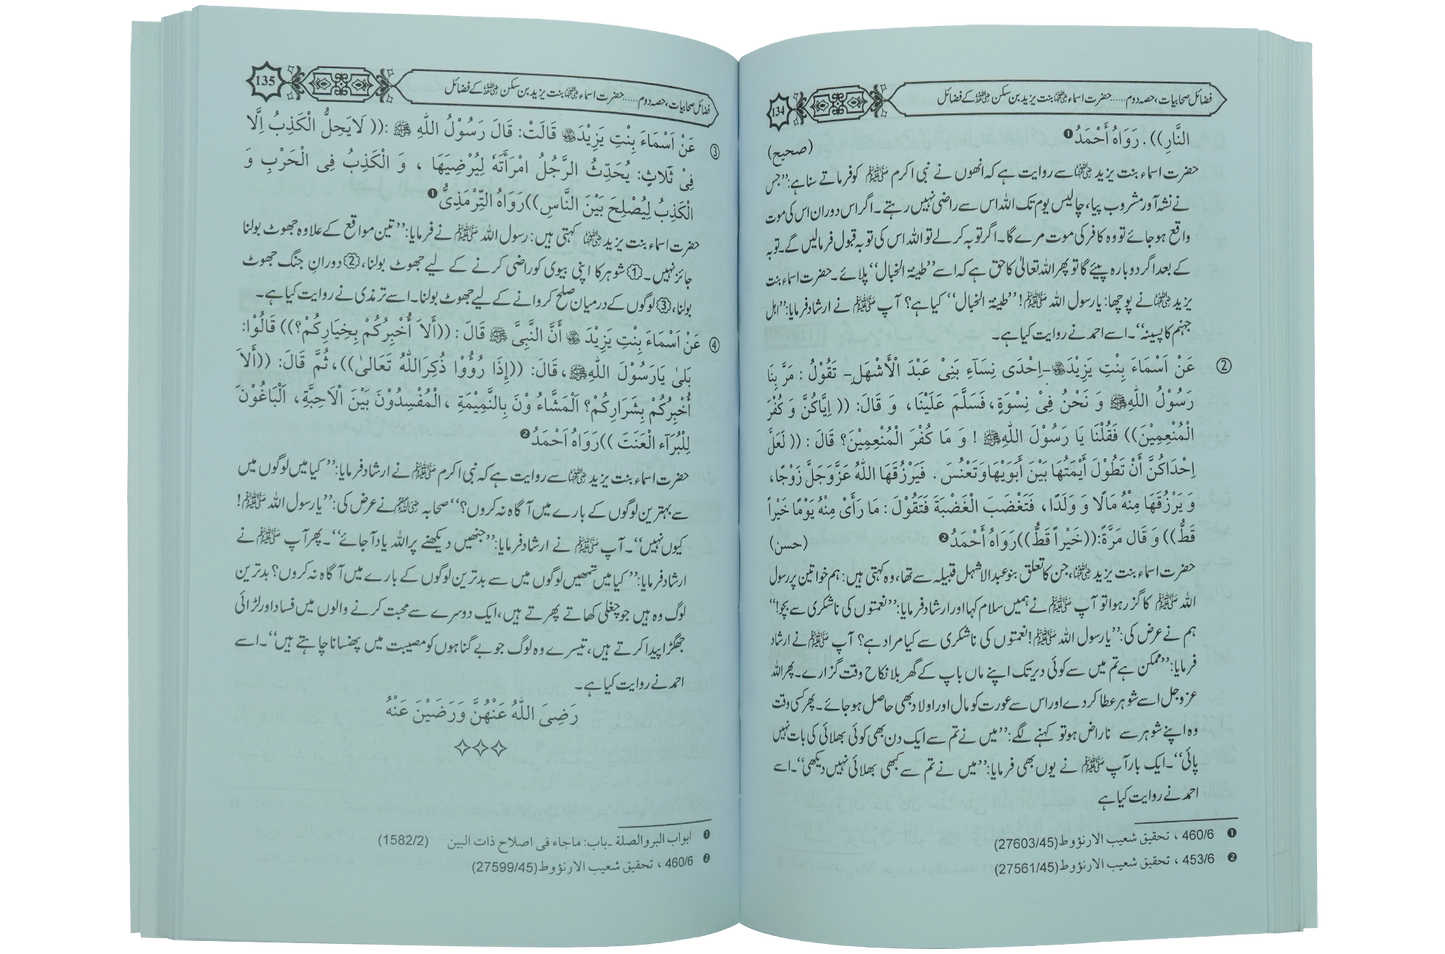 فضائل صحابیات، حصہ دوم ..... حضرت اسماء رضی اللہ عنہا بنت یزید بن سکن رضی اللہ عنہ کے فضائل
134
النَّارِ)) . رَوَاهُ أَحْمَدُ❶ (صحيح)
حضرت اسماء بنت یزید رضی اللہ عنہا سے روایت ہے کہ انھوں نے نبی اکرم ﷺ کو فرماتے سنا ہے: ’’جس
نے نشہ آور مشروب پیا، چالیس یوم تک اللہ اس سے راضی نہیں رہتے۔ اگر اس دوران اس کی موت
واقع ہوجائے تو وہ کافر کی موت مرے گا۔ اگر توبہ کرلے تو اللہ اس کی توبہ قبول فرمالیں گے۔ توبہ
کے بعد اگر دوبارہ پیئے گا تو پھر اللہ تعالیٰ کا حق ہے کہ اسے ’’طینۃ الخبال‘‘ پلائے۔ حضرت اسماء بنت
یزید رضی اللہ عنہا نے پوچھا: یا رسول اللہ ﷺ! ’’طینۃ الخبال‘‘ کیا ہے؟ آپ ﷺ نے ارشاد فرمایا: ’’اہل
جہنم کا پسینہ‘‘۔ اسے احمد نے روایت کیا ہے۔
② عَنْ اَسْمَاءَ بِنْتِ یَزِیْدَ رضی اللہ عنہا۔اِحْدٰی نِسَآءِ بَنِیْ عَبْدِ الْأَشْهَلِ۔ تَقُوْلُ : مَرَّ بِنَا
رَسُوْلُ اللهِ ﷺ وَ نَحْنُ فِیْ نِسْوَةٍ، فَسَلَّمَ عَلَیْنَا، وَ قَالَ: (( اِیَّاکُنَّ وَ کُفْرَ
الْمُنْعِمِیْنَ)) فَقُلْنَا یَا رَسُوْلَ اللهِ ﷺ ! وَ مَا کُفْرَ الْمُنْعِمِیْنَ؟ قَالَ : (( لَعَلَّ
اِحْدَاکُنَّ أَنْ تَطُوْلَ أَیْمَتُهَا بَیْنَ أَبَوَیْهَا وَتَعْنُسَ . فَیَرْزُقَهَا اللهُ عَزَّوَجَلَّ زَوْجًا،
وَ یَرْزُقَهَا مِنْهُ مَالًا وَ وَلَدًا، فَتَغْضَبَ الْغَضْبَةَ فَتَقُوْلَ : مَا رَأَیْ مِنْهُ یَوْمًا خَیْراً
قَطُّ)) وَ قَالَ مَرَّةً: ((خَیْراً قَطُّ)) رَوَاهُ أَحْمَدُ❷ (حسن)
حضرت اسماء بنت یزید رضی اللہ عنہا، جن کا تعلق بنو عبد الاشہل قبیلہ سے تھا، وہ کہتی ہیں: ہم خواتین پر رسول
اللہ ﷺ کا گزر ہوا تو آپ ﷺ نے ہمیں سلام کہا اور ارشاد فرمایا: ’’نعمتوں کی ناشکری سے بچو!‘‘
ہم نے عرض کی: ’’یا رسول اللہ ﷺ! نعمتوں کی ناشکری سے کیا مراد ہے؟ آپ ﷺ نے ارشاد
فرمایا: ’’ممکن ہے تم میں سے کوئی دیر تک اپنے ماں باپ کے گھر بلا نکاح وقت گزارے۔ پھر اللہ
عزوجل اسے شوہر عطا کردے اور اس سے عورت کو مال اور اولاد بھی حاصل ہو جائے۔ پھر کسی وقت
وہ اپنے شوہر سے ناراض ہو تو کہنے لگے: ’’میں نے تم سے ایک دن بھی کوئی بھلائی کی بات نہیں
پائی‘‘۔ ایک بار آپ ﷺ نے یوں بھی فرمایا: ’’میں نے تم سے کبھی بھلائی نہیں دیکھی‘‘۔ اسے
احمد نے روایت کیا ہے
❶ 460/6 ، تحقیق شعیب الارنؤوط(27603/45)
❷ 453/6 ، تحقیق شعیب الارنؤوط(27561/45)
فضائل صحابیات، حصہ دوم ..... حضرت اسماء رضی اللہ عنہا بنت یزید بن سکن رضی اللہ عنہ کے فضائل
135
③ عَنْ اَسْمَاءَ بِنْتِ یَزِیْدَ رضی اللہ عنہا قَالَتْ: قَالَ رَسُوْلُ اللهِ ﷺ :(( لَا یَحِلُّ الْکَذِبُ اِلَّا
فِیْ ثَلَاثٍ: یُحَدِّثُ الرَّجُلُ امْرَأَتَهُ لِیُرْضِیَهَا ، وَ الْکَذِبُ فِی الْحَرْبِ وَ
الْکَذِبُ لِیُصْلِحَ بَیْنَ النَّاسِ)) رَوَاهُ التِّرْمَذِیُّ❶
حضرت اسماء بنت یزید رضی اللہ عنہا کہتی ہیں: رسول اللہ ﷺ نے فرمایا: ’’تین مواقع کے علاوہ جھوٹ بولنا
جائز نہیں۔ ① شوہر کا اپنی بیوی کو راضی کرنے کے لیے جھوٹ بولنا، ② دوران جنگ جھوٹ
بولنا، ③ لوگوں کے درمیان صلح کروانے کے لیے جھوٹ بولنا۔ اسے ترمذی نے روایت کیا ہے۔
④ عَنْ اَسْمَاءَ بِنْتِ یَزِیْدَ رضی اللہ عنہا أَنَّ النَّبِیَّ ﷺ قَالَ : ((أَلَا أُخْبِرُکُمْ بِخِیَارِکُمْ؟)) قَالُوْا:
بَلیٰ یَا رَسُوْلَ اللهِ ﷺ، قَالَ: ((إِذَا رُؤُوْا ذُکِرَ اللهُ تَعَالیٰ))، ثُمَّ قَالَ: ((أَلَا
أُخْبِرُکُمْ بِشَرَارِکُمْ؟ اَلْمَشَّاءُ وْنَ بِالنَّمِیْمَةِ ، الْمُفْسِدُوْنَ بَیْنَ الْاَحِبَّةِ، اَلْبَاغُوْنَ
لِلْبُرَآءِ الْعَنَتَ )) رَوَاهُ اَحْمَدُ❷
حضرت اسماء بنت یزید رضی اللہ عنہا سے روایت ہے کہ نبی اکرم ﷺ نے ارشاد فرمایا: ’’کیا میں لوگوں میں
سے بہترین لوگوں کے بارے میں آگاہ نہ کروں؟‘‘ صحابہ رضی اللہ عنہم نے عرض کی: ’’یا رسول اللہ ﷺ!
کیوں نہیں‘‘۔ آپ ﷺ نے ارشاد فرمایا: ’’جنھیں دیکھنے پر اللہ یاد آجائے‘‘۔ پھر آپ ﷺ نے
ارشاد فرمایا: ’’کیا میں تمھیں لوگوں میں سے بدترین لوگوں کے بارے میں آگاہ نہ کروں؟ بدترین
لوگ وہ ہیں جو چغلی کھاتے پھرتے ہیں، ایک دوسرے سے محبت کرنے والوں میں فساد اور لڑائی
جھگڑا پیدا کرتے ہیں، تیسرے وہ لوگ جو بے گناہوں کو مصیبت میں پھنسانا چاہتے ہیں‘‘۔ اسے
احمد نے روایت کیا ہے۔
رَضِیَ اللهُ عَنْهُنَّ وَرَضَیْنَ عَنْهُ
❶ ابواب البر والصلة ۔باب: ماجاء فی اصلاح ذات البین (1582/2)
❷ 460/6 ، تحقیق شعیب الارنؤوط(27599/45)